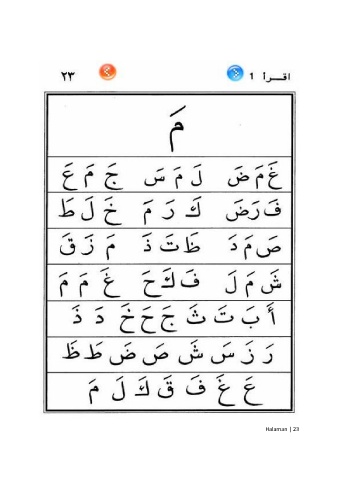 اقـرأ 1 ٢٣
مَ
غَ مَ ضَ لَ مَ سَ جَ مَ عَ
فَ رَ ضَ كَ رَ مَ خَ لَ طَ
صَ مَ دَ ظَ تَ ذَ مَ زَ قَ
شَ مَ لَ فَ كَ حَ غَ مَ مَ
أَ بَ تَ ثَ جَ حَ خَ دَ ذَ
رَ زَ سَ شَ صَ ضَ طَ ظَ
عَ غَ فَ قَ كَ لَ مَ
Halaman | 23